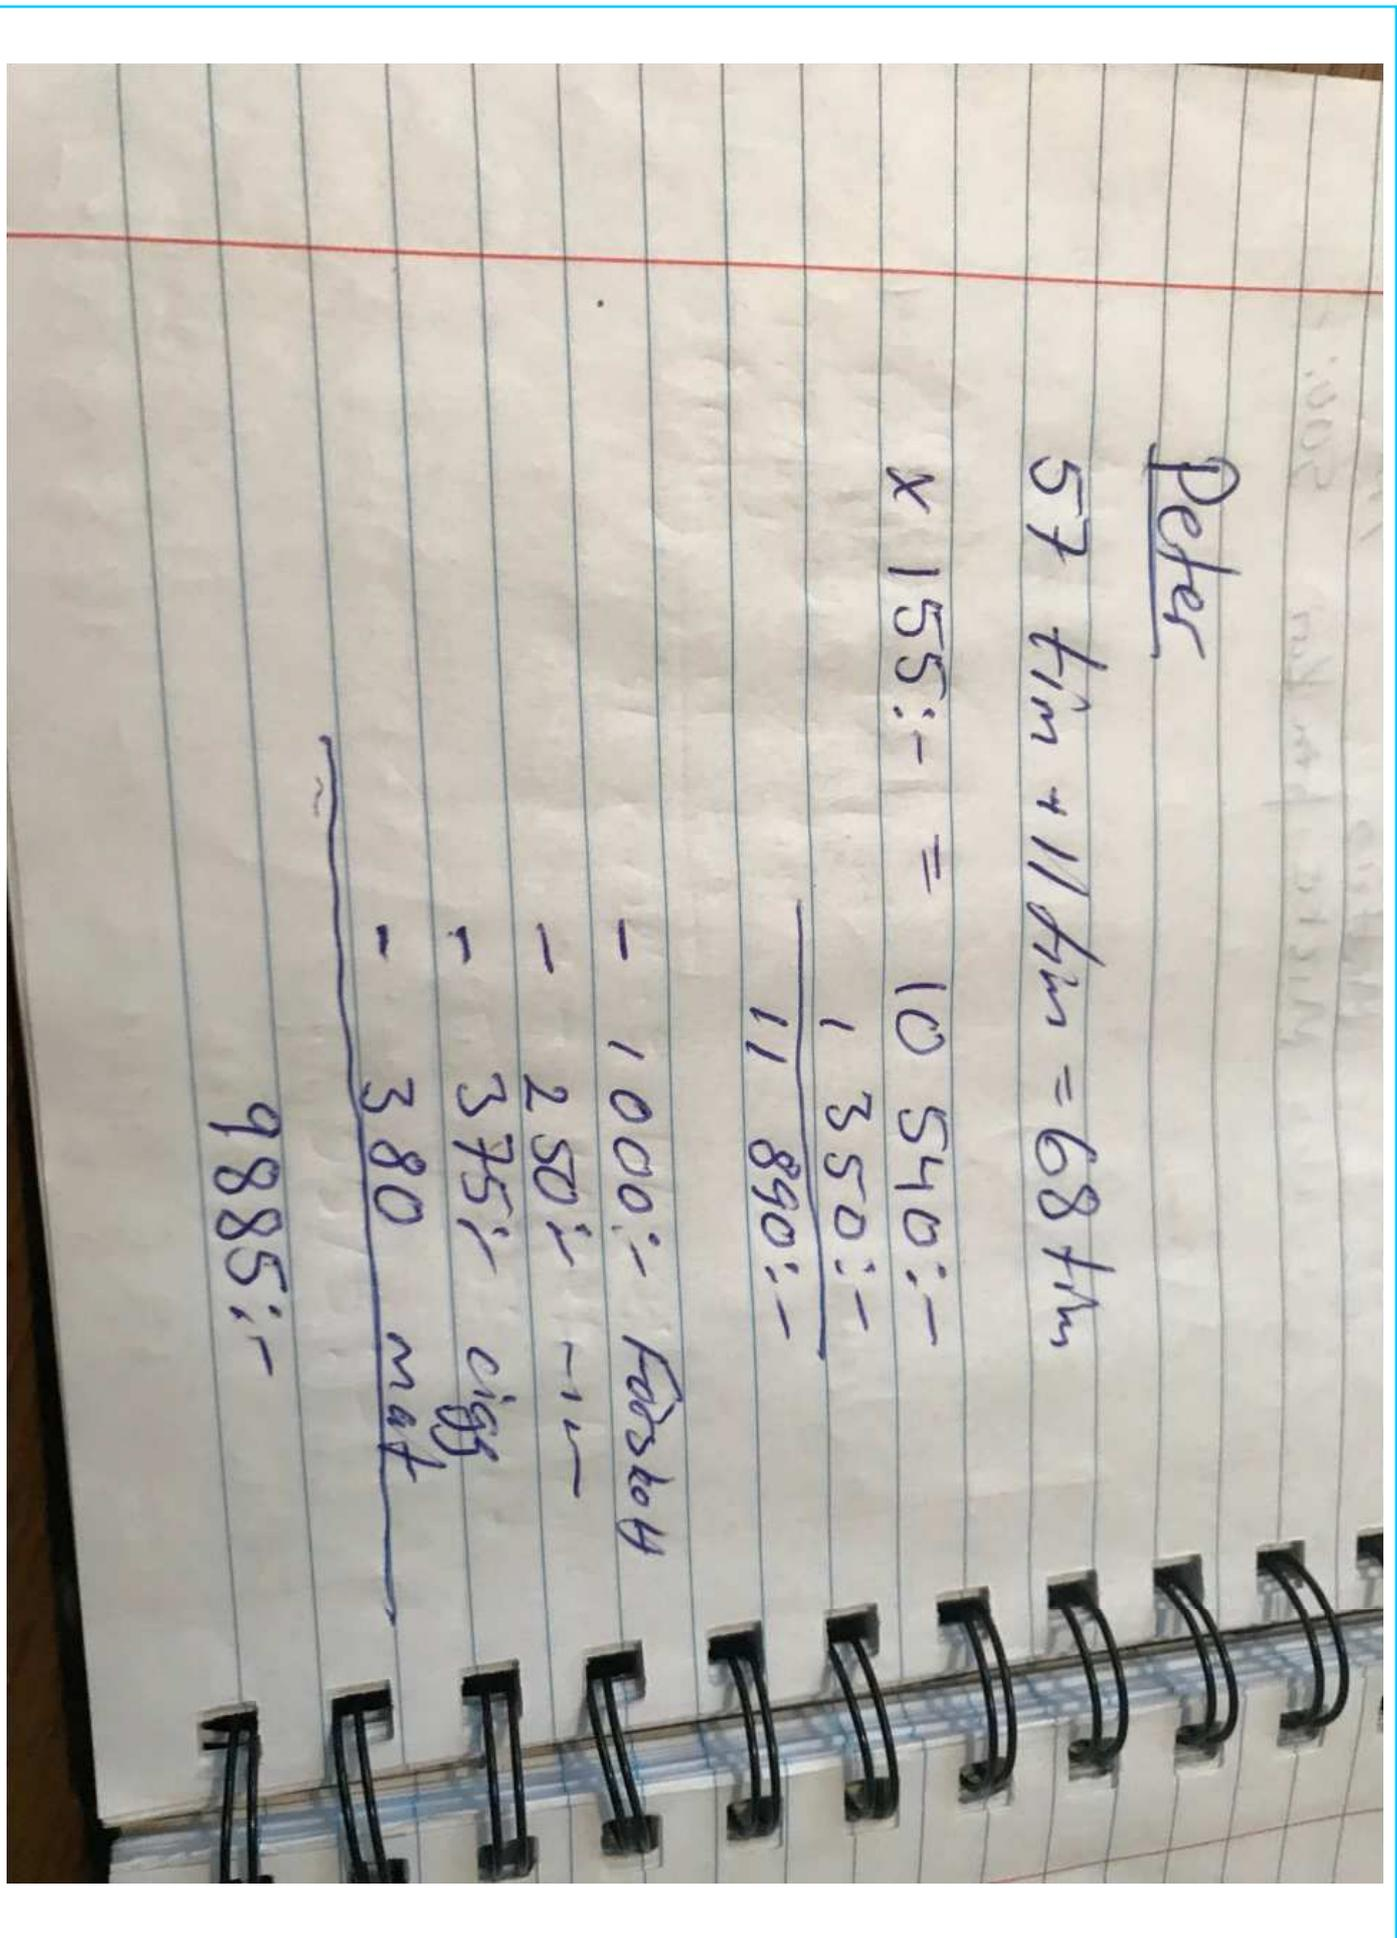 Peter
57 tim + 11 tim = 68 tim
x 155:- = 10 540:-
1 350:-
11 890:-
- 1000:- Förskott
- 250:- -"-
- 375:- cigg
- 380 mat
9885:-